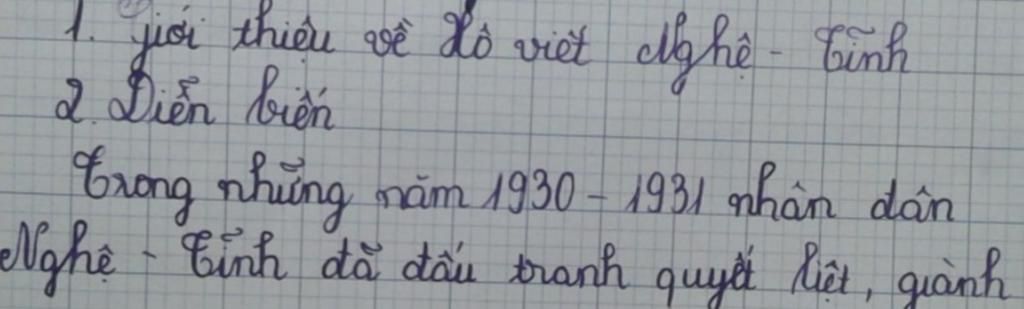 1. Giới thiệu về Xô viết Nghệ - Tĩnh
2. Diễn biến
Trong những năm 1930 - 1931 nhân dân
Nghệ - Tĩnh đã đấu tranh quyết liệt, giành